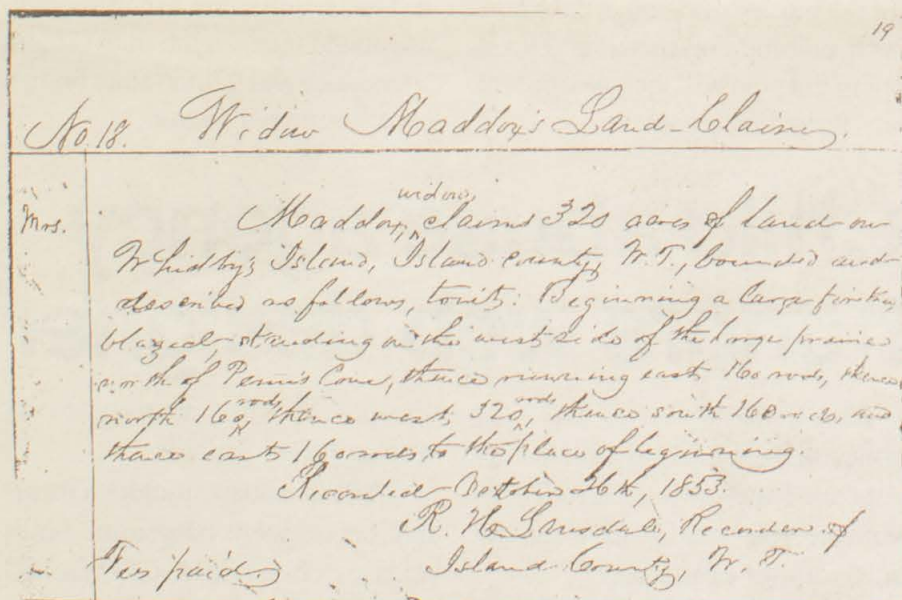 19
No. 18. Widow Maddox's Land-Claim.
widow,
Mrs. Maddox, claims 320 acres of land on
Whidby's Island, Island county, W. T., bounded and
described as follows, towit: Beginning a large fir tree,
blazed, standing on the west side of the large prairie
north of Penn's Cove, thence running east 160 rods, thence
rods rods
north 160, thence west, 320, thence south 160 rods, and
thence east 160 rods, to the place of beginning.
Recorded October 26th, 1853.
R. H. Lansdale, Recorder of
Fees paid. Island County, W. T.